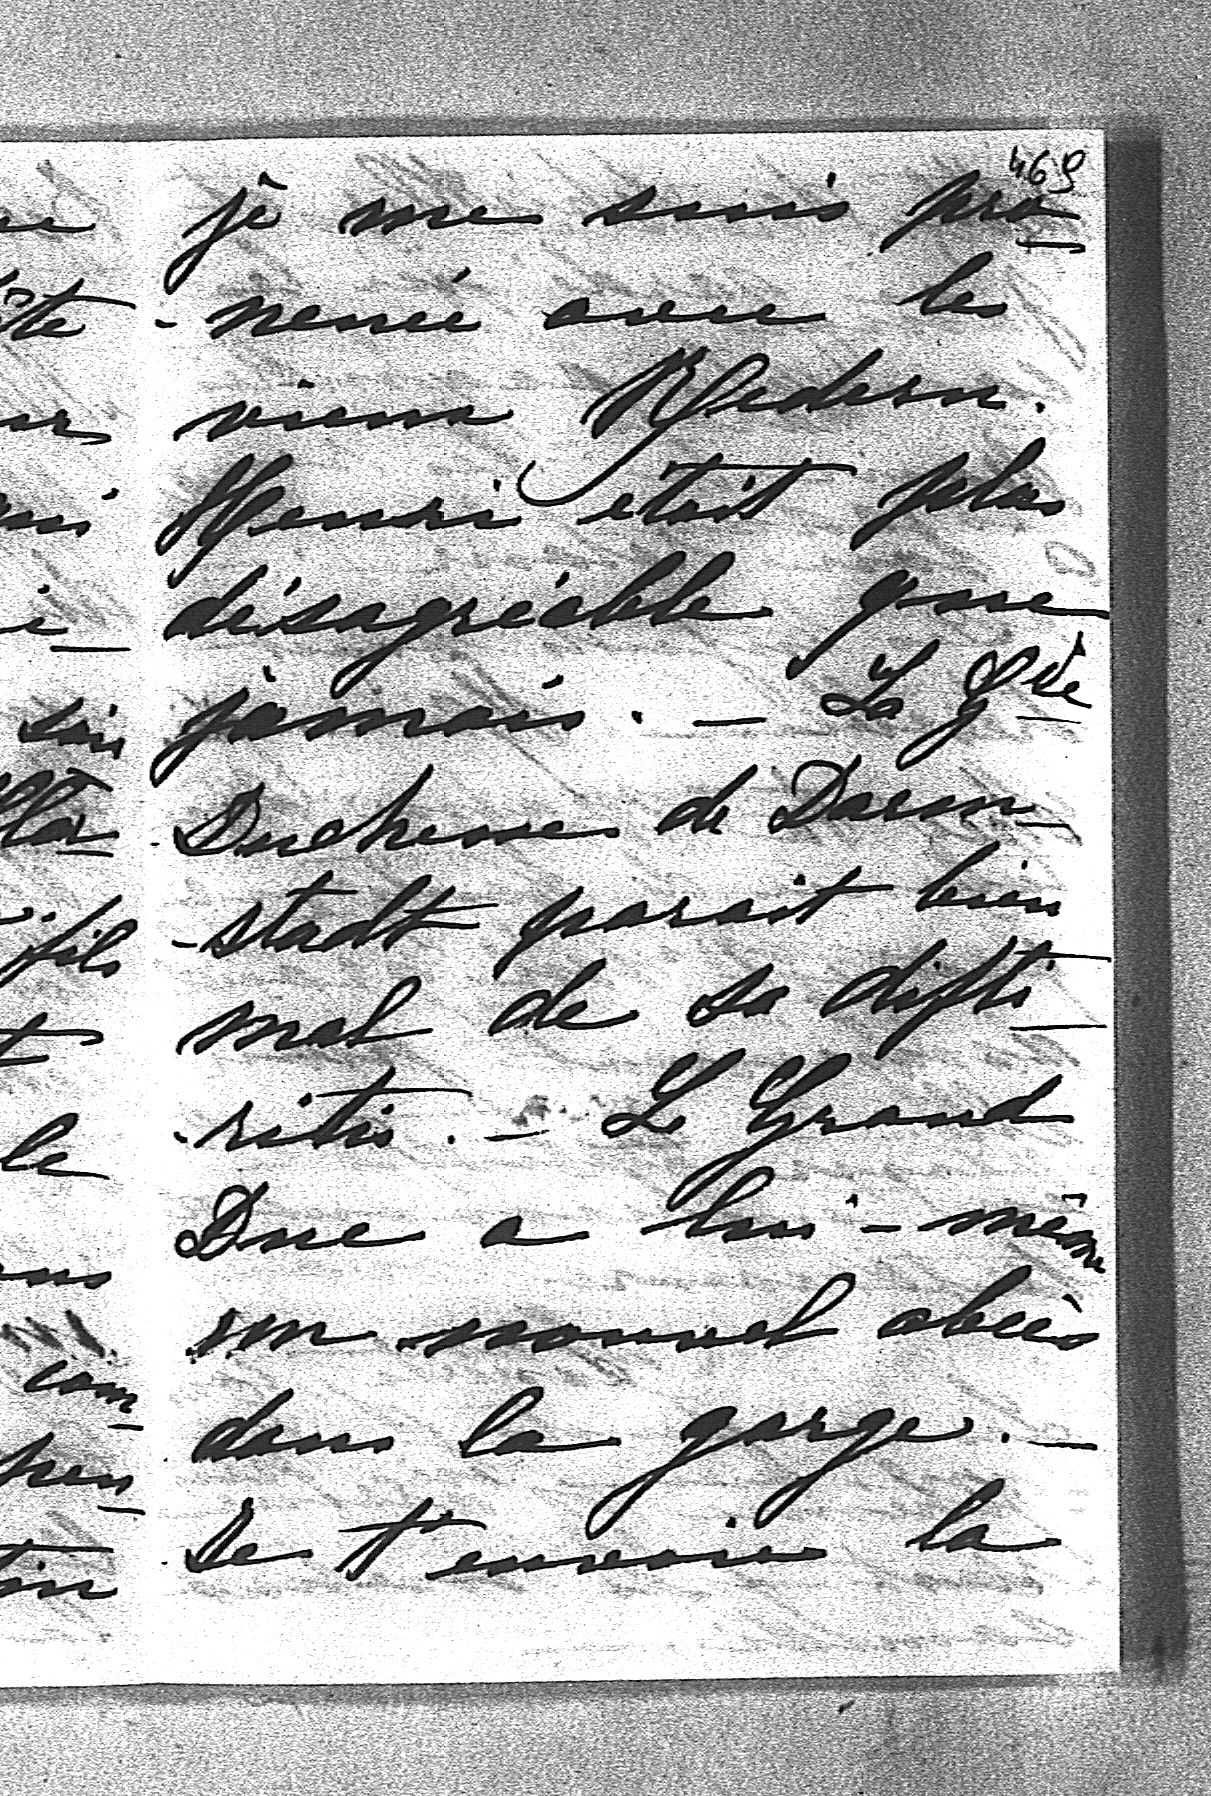 469
je me suis pro-
-menée avec les
vieux Redern.
Henri était plus
désagréable que
jamais. — La Gde
Duchesse de Darm-
-stadt parait bien
mal de sa difti-
-ritis. — Le Grand
Duc a lui-même
un nouvel abcès
dans la gorge. —
Je t'envoie la